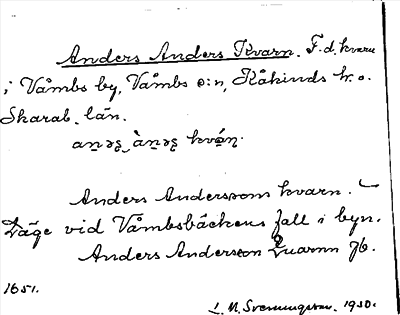 Anders Anders Kvarn. F.d. kvarn
i Våmbs by, Våmbs s:n, Kåkinds h. o.
Skarab. län.
Anders Andersson kvarn.
Läge vid Våmbsbäckens fall i byn.
Anders Andersson Quarnn Jb.
1651.
L. M. Svenungsson. 1930.